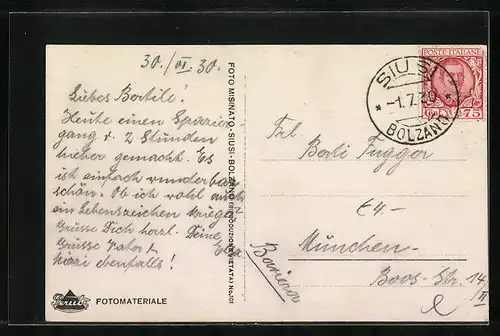 30./VI.30.
Liebes Bertile!
Heute einen Spazier-
gang v. 2 Stunden
hieher gemacht. Es
ist einfach wunderbar
schön. Ob ich wohl auch
ein Lebenszeichen kriege?
Grüsse Dich herzl. Deine
Grüsse Vater &
ebenfalls!
FOTO MISINATO-SIUSI-BOLZANO (RIPRODUZIONE VIETATA) No
FOTOMATERIALE
POSTE ITALIANE
75
SIUSI
-1.7.30
BOLZANO
Frl.
Berti Fugger
München-
Boos-Str. 14/II
Baviera